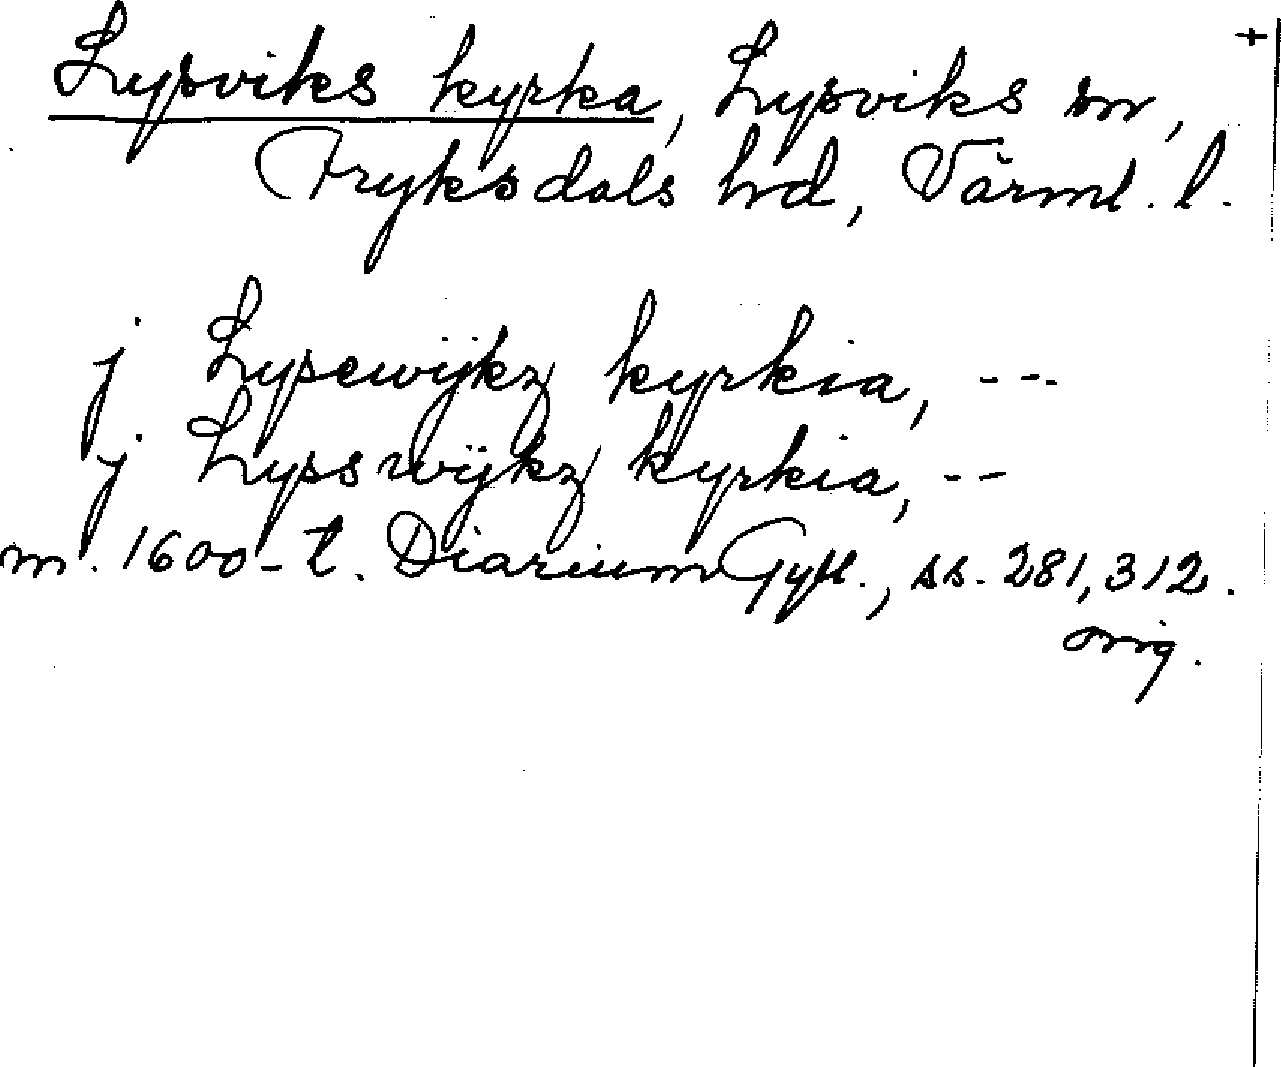 Lysviks kyrka, Lysviks sn,
Fryksdals hd, Värml. l.
j Lysewijkz kyrkia, ---
j Lysswijkz kyrkia, --
m. 1600-t. Diarium Gyll., ss. 281, 312.
orig.